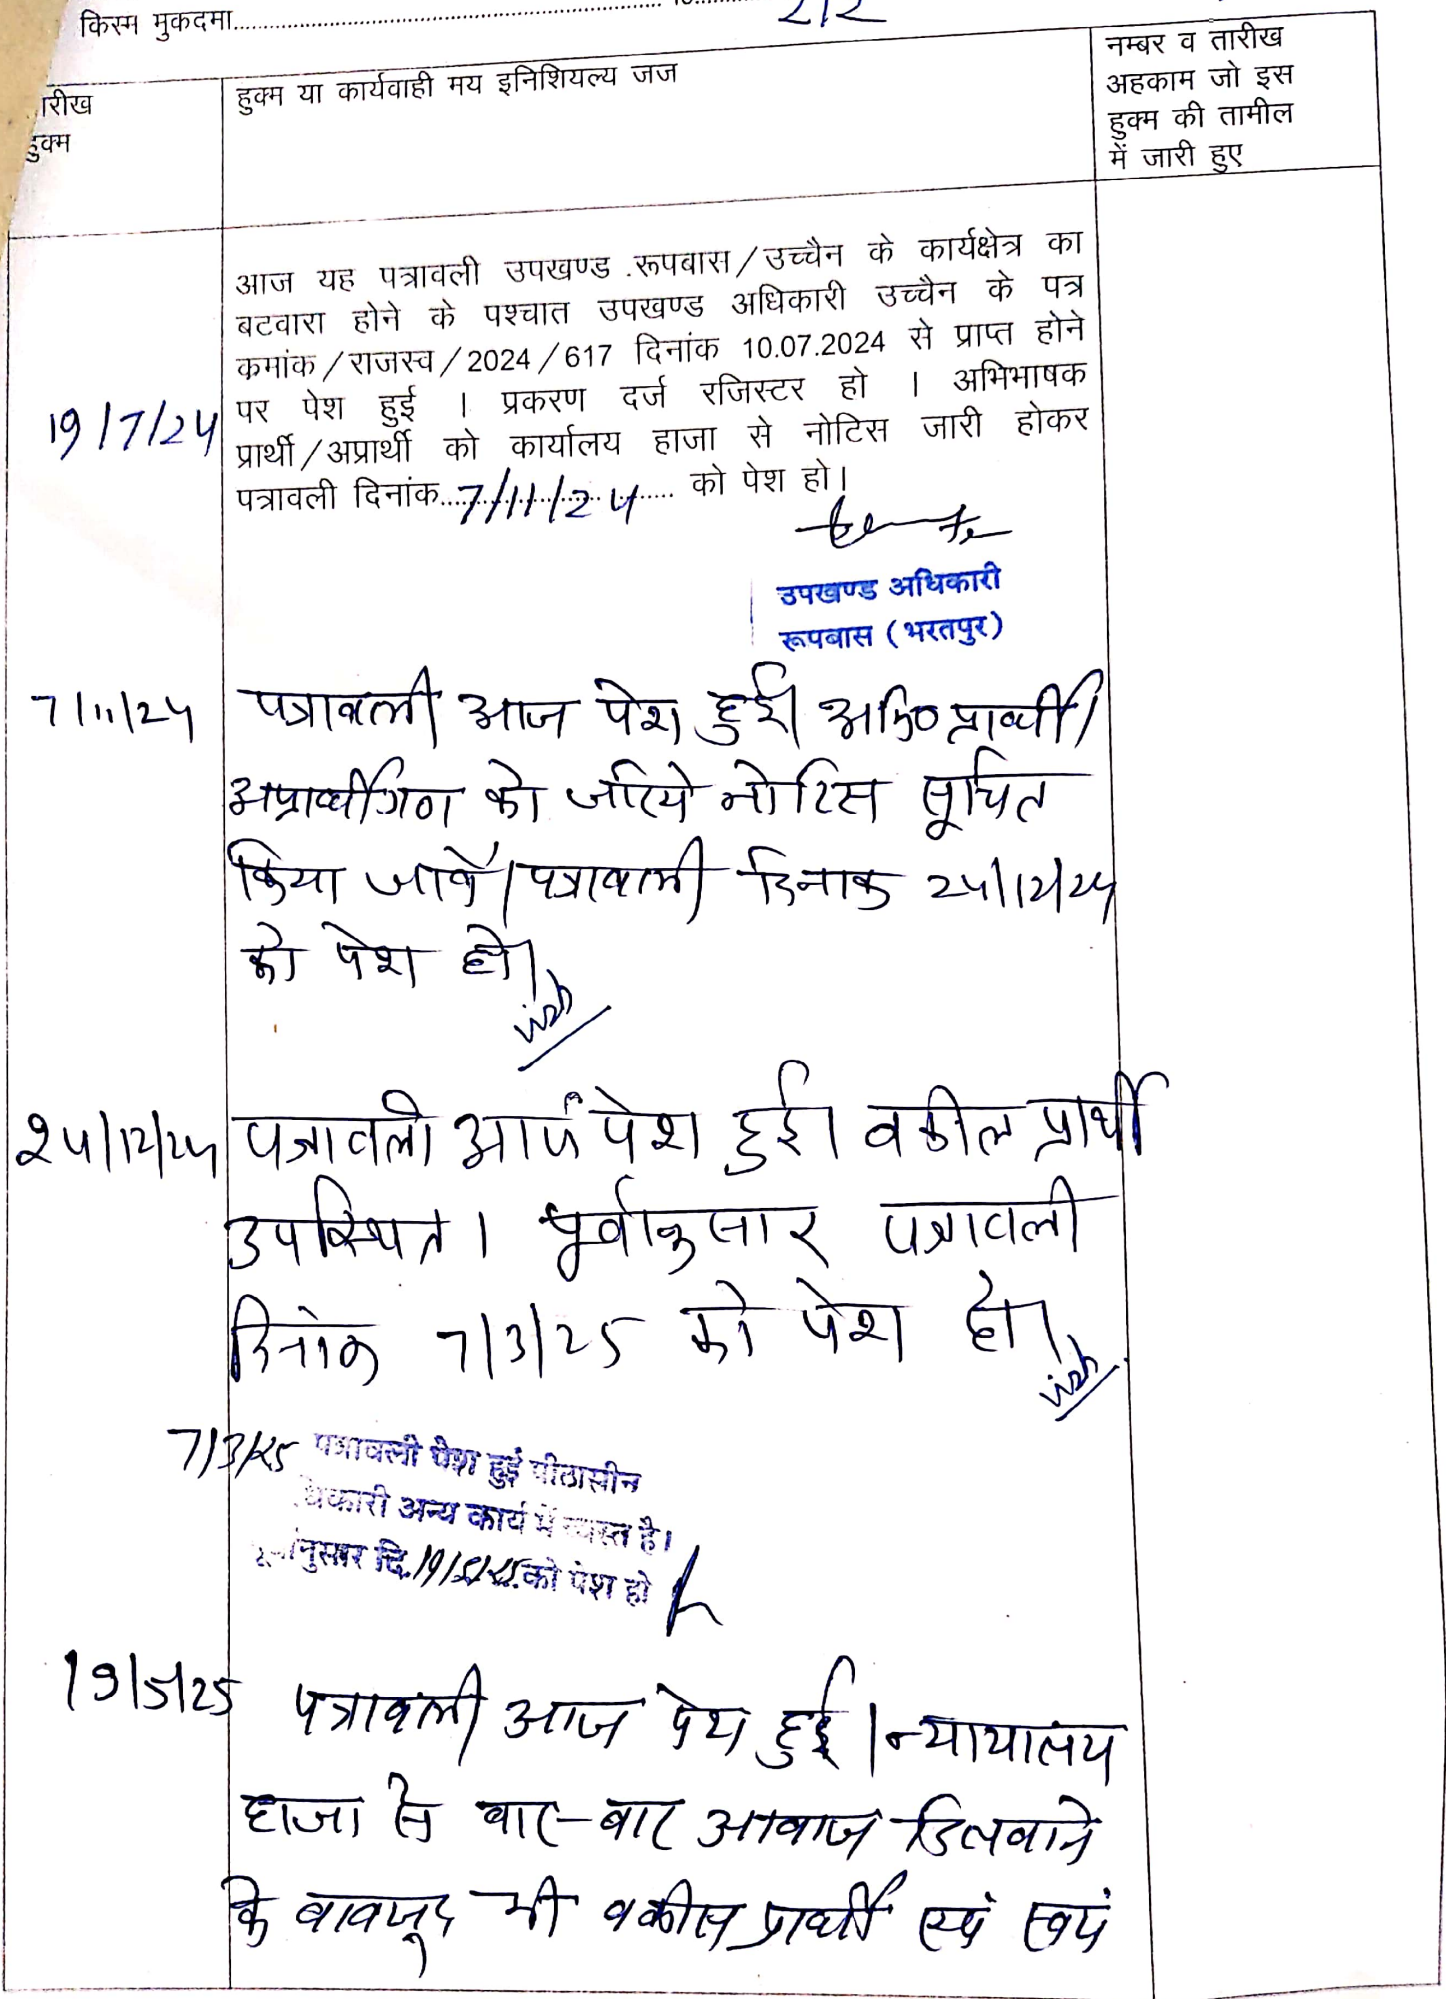 किस्म मुकदमा
तारीख
हुक्म
हुक्म या कार्यवाही मय इनिशियल्य जज
नम्बर व तारीख
अहकाम जो इस
हुक्म की तामील
में जारी हुए
आज यह पत्रावली उपखण्ड .रूपबास/उच्चैन के कार्यक्षेत्र का
बटवारा होने के पश्चात उपखण्ड अधिकारी उच्चैन के पत्र
कमांक/राजस्व/2024/617 दिनांक 10.07.2024 से प्राप्त होने
पर पेश हुई । प्रकरण दर्ज रजिस्टर हो । अभिभाषक
19/7/24
प्रार्थी/अप्रार्थी को कार्यालय हाजा से नोटिस जारी होकर
पत्रावली दिनांक 7/11/24 को पेश हो।
उपखण्ड अधिकारी
रूपबास (भरतपुर)
7/11/24 पत्रावली आज पेश हुई। अभि० प्रार्थी/
अप्रार्थीगण को जरिये नोटिस सूचित
किया जावें। पत्रावली दिनाक 24/12/24
को पेश हो।
24/12/24 पत्रावली आज पेश हुई। वकील प्रार्थी
उपस्थित। पूर्वानुसार पत्रावली
दिनांक 7/3/25 को पेश हो।
7/3/25 पत्रावली पेश हुई पीठासीन
धिकारी अन्य कार्य में व्यस्त है।
नुसार दि. 19/5/25 को पेश हो
19/5/25 पत्रावली आज पेश हुई। न्यायालय
हाजा से बार-बार आवाज दिलवाने
के बावजूद भी वकील प्रार्थी एवं स्वयं